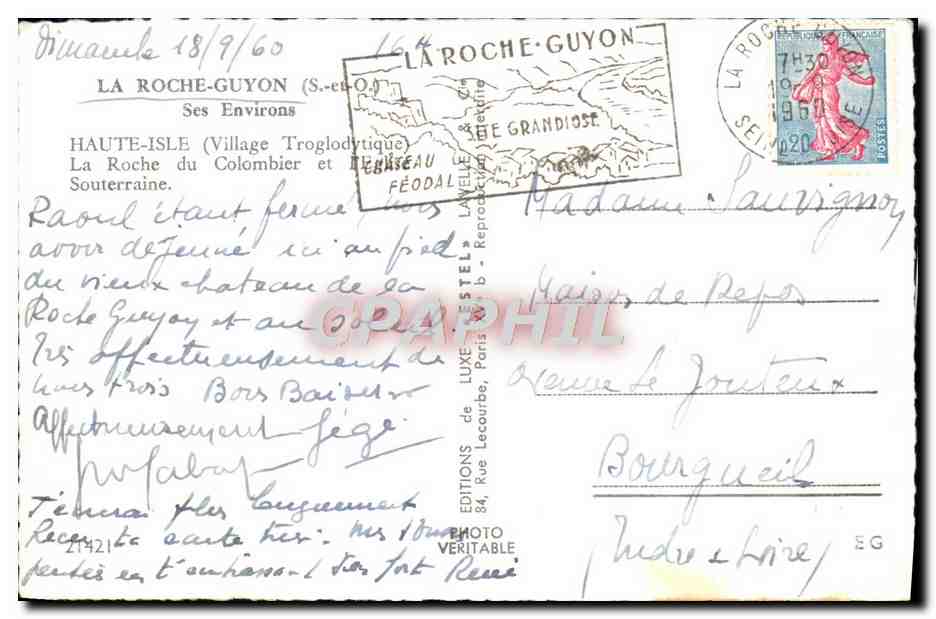 Dimanche 18/9/60 16 H
LA ROCHE-GUYON (S.-et-O.)
Ses Environs
HAUTE-ISLE (Village Troglodytique)
La Roche du Colombier et l'Eglise
Souterraine.
Raoul étant fermé nous
avons déjeuné ici au pied
du vieux chateau de la
Roche Guyon et au soleil.
Très affectueusement de
nous trois Bons Baisers
Affectueusement Gégé
T'écrirai plus longuement
Reçu ta carte
pensées en t'embrassant bien fort René
21421
LA ROCHE-GUYON
SITE GRANDIOSE
CHATEAU
FÉODAL
LA ROCHE GUYON
7H30
19-9
1960
SEINE ET OISE
REPUBLIQUE FRANÇAISE
0,20
POSTES
EDITIONS de LUXE «ESTEL» LAVELLE & Cie
84, Rue Lecourbe, Paris XV b - Reproduction interdite
PHOTO
VERITABLE
CPAPHIL
Madame Sauvignon
Maison de Repos
Avenue Le Jouteux
Bourgueil
(Indre et Loire)
EG